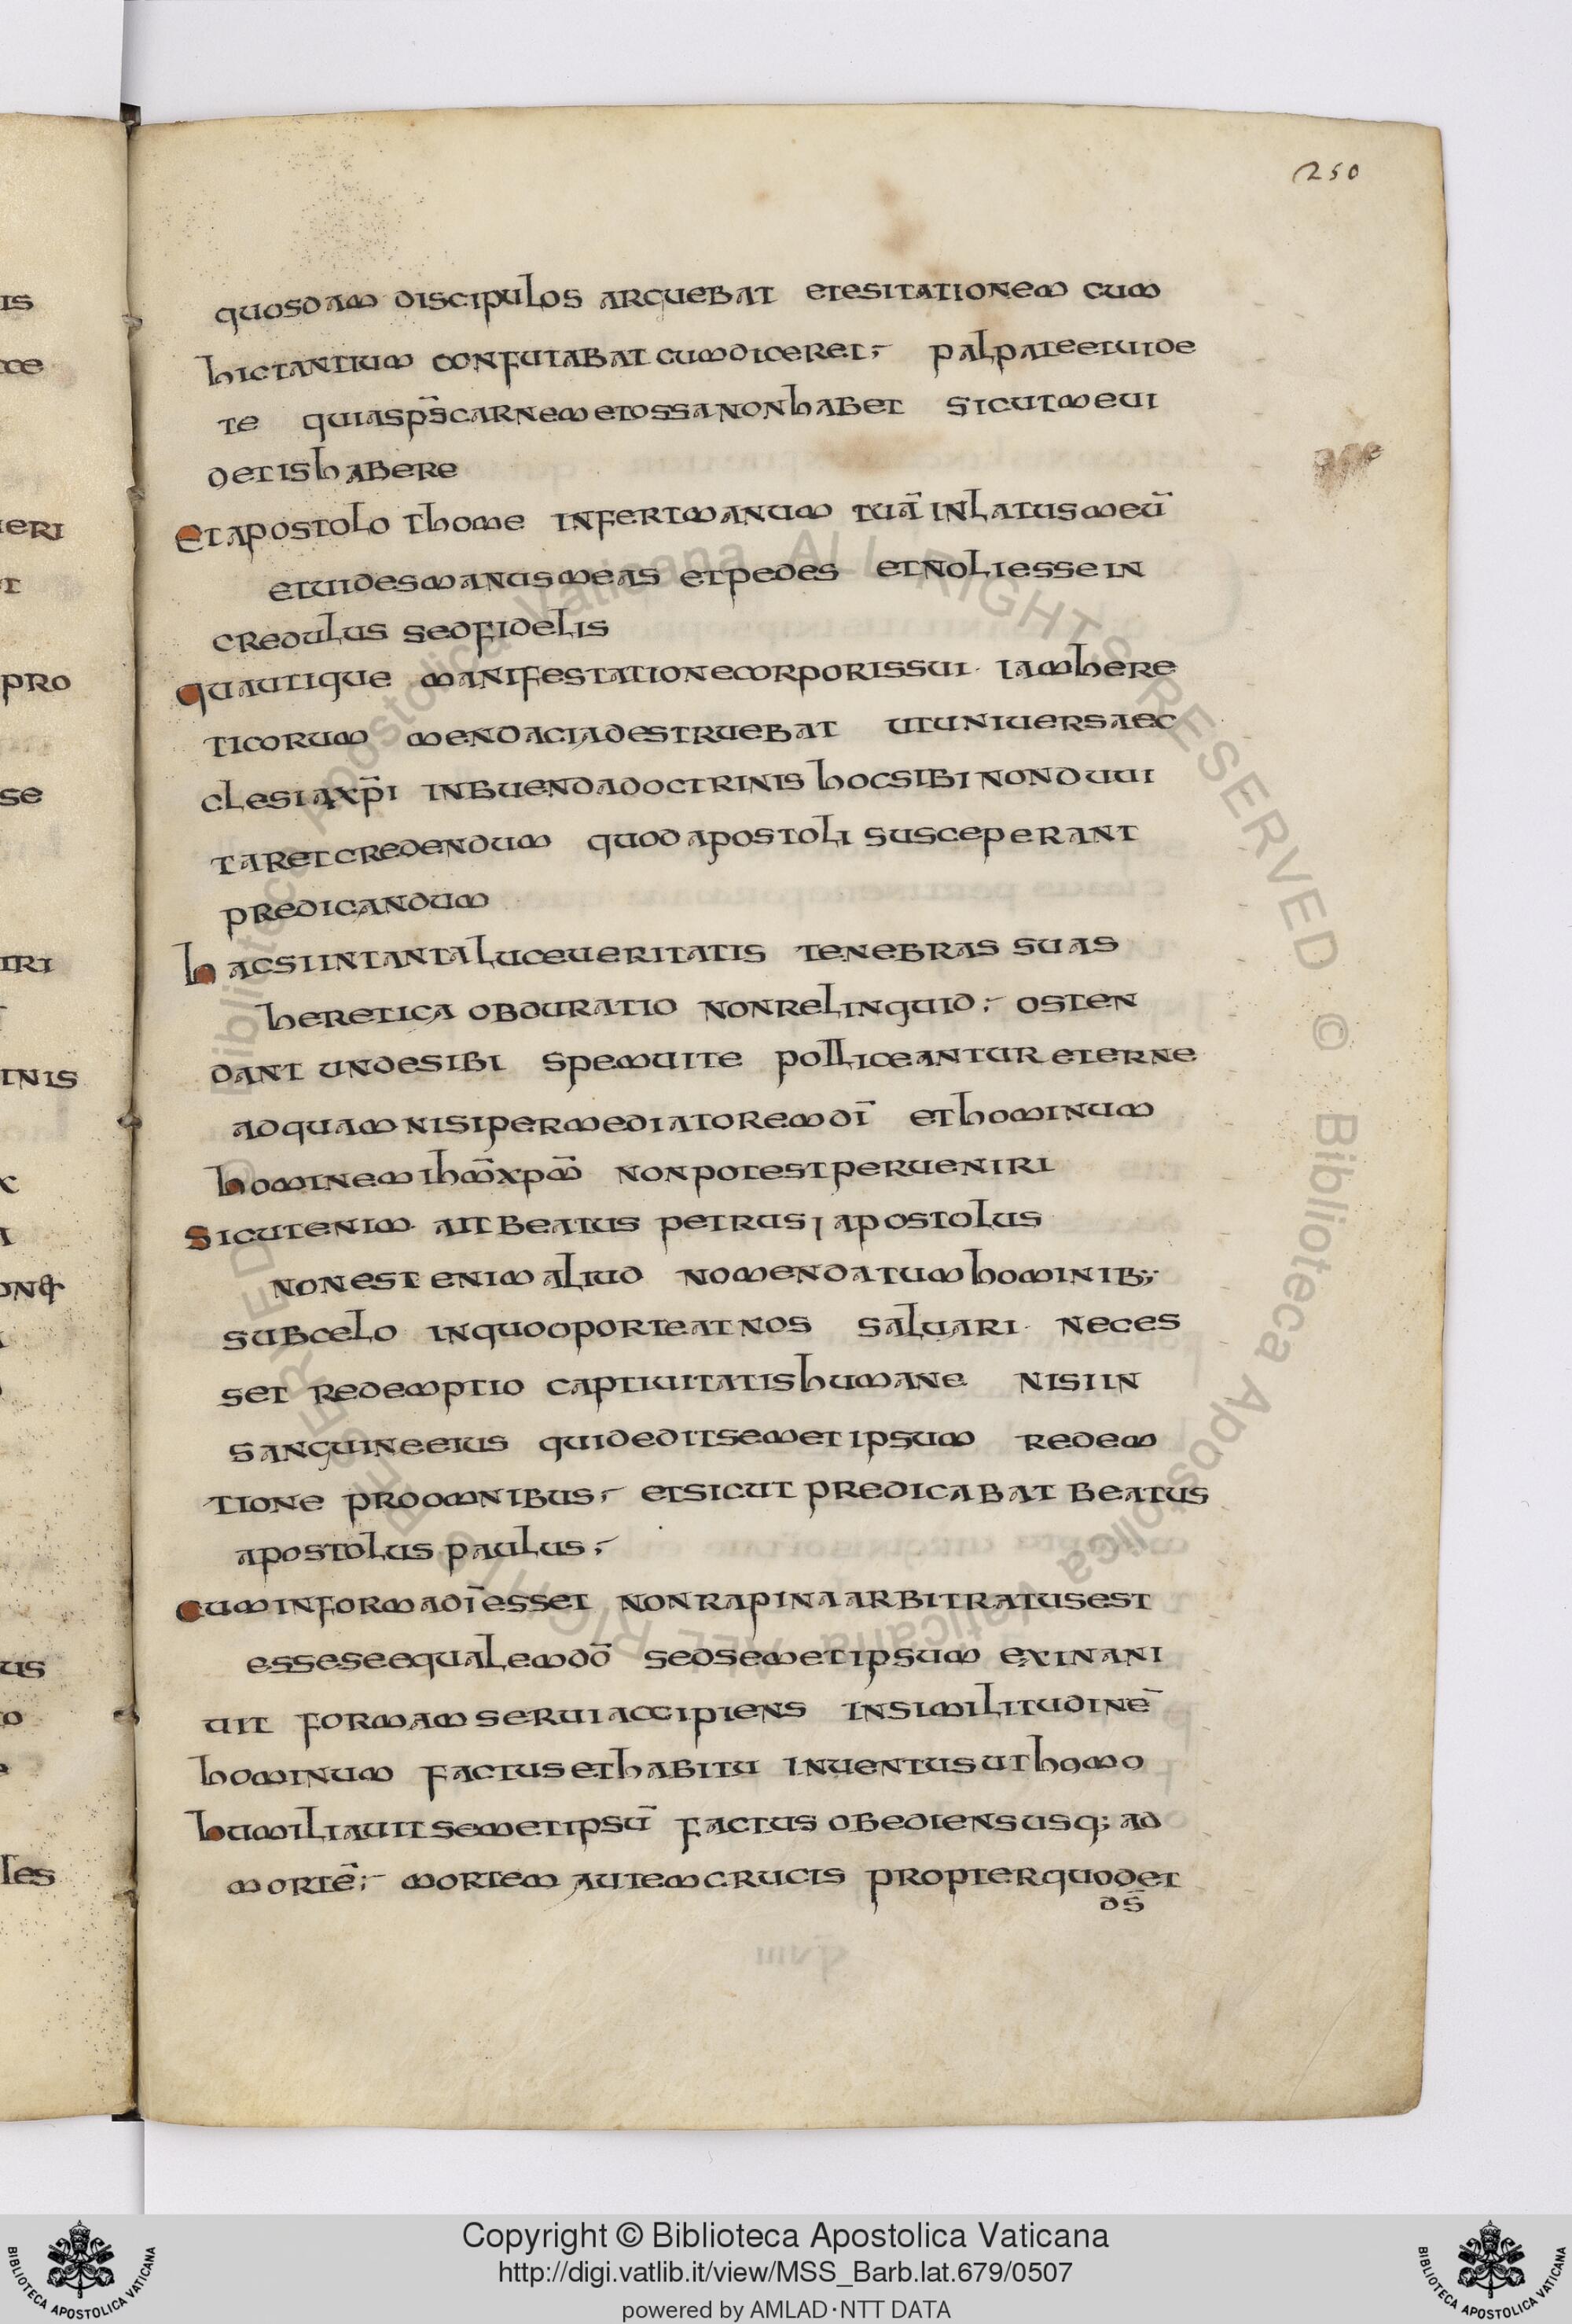 250
quosdam discipulos arguebat etesitationem cum
hictantium confutabat cumdiceret;- palpateetuide
te quiasp̄scarnemetossanonhabet sicutmeui
detishabere
Etapostolo thome infertmanum tuā inlatusmeū
etuidesmanusmeas etpedes etnoliessein
credulus sedfidelis
Quautique manifestationecorporissui· iamhere
ticorum mendaciadestruebat utuniuersaec
clesiaxp̄i inbuendadoctrinis hocsibinonduui
taretcredendum quodapostoli susceperant
predicandum
hacsiintantaluceueritatis tenebras suas
heretica obduratio nonrelinquid;- osten
dant undesibi spemuite polliceantur eterne
adquamnisipermediatoremdī ethominum
hominemihm̄xpm̄ nonpotestperueniri
Sicutenim· aitbeatus petrus; apostolus
nonestenim aliud nomendatumhominib;;
subcelo inquooporteatnos saluari· neces
set redemptio captiuitatishumane nisiin
sanguineeius quideditsemetipsum redem
tione proomnibus;- etsicut predicabat beatus
apostolus paulus;-
cuminformadīesset nonrapinaarbitratusest
esseseequalemdō sedsemetipsum exinani
uit formamseruiaccipiens insimilitudinē
hominum factusethabitu inuentusuthomo
humiliauitsemetipsū factus obediensusq; ad
mortē;- mortem autemcrucis propterquodet
ds̄
Copyright © Biblioteca Apostolica Vaticana
http://digi.vatlib.it/view/MSS_Barb.lat.679/0507
powered by AMLAD·NTT DATA
BIBLIOTECA APOSTOLICA VATICANA
BIBLIOTECA APOSTOLICA VATICANA